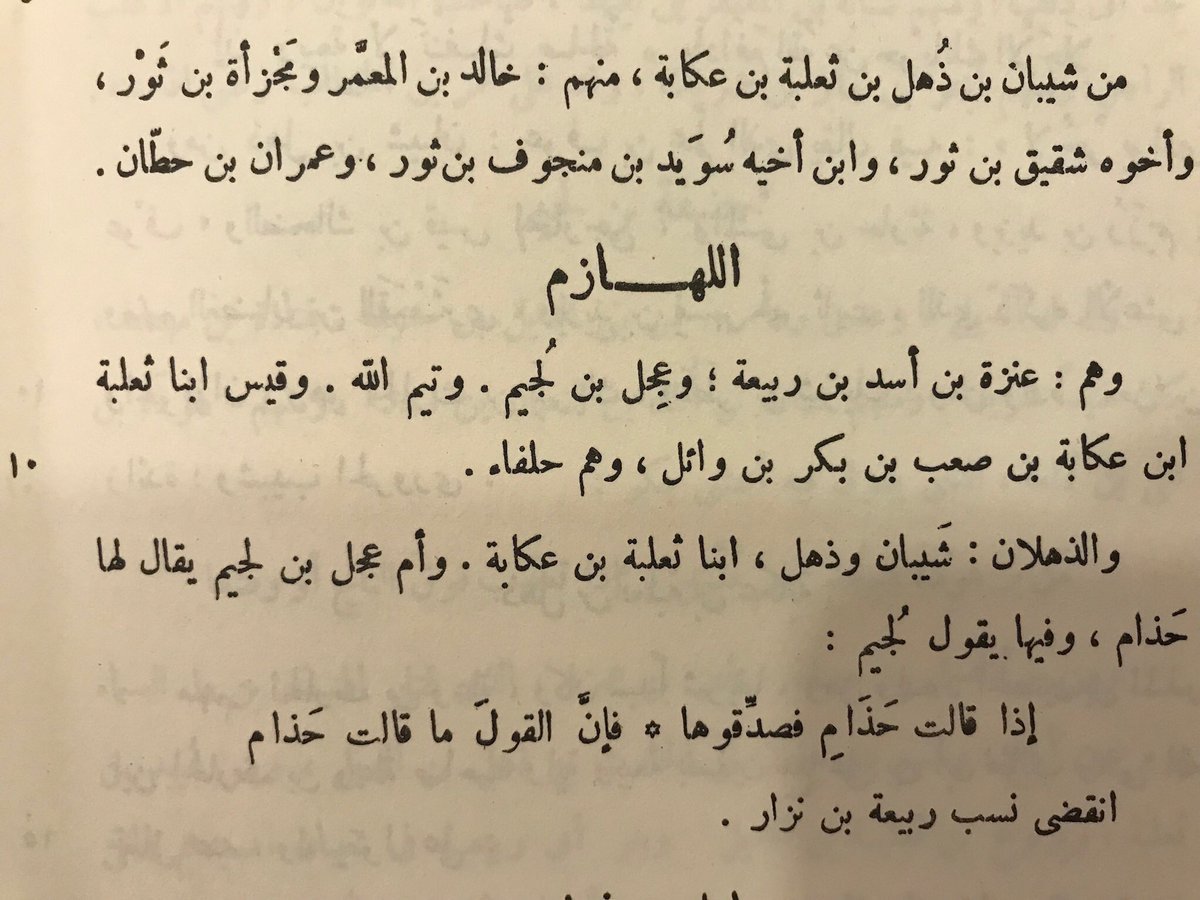 من شيبان بن ذُهل بن ثعلبة بن عكابة ، منهم : خالد بن المعمَّر ومَجْزأة بن ثَوْر ،
وأخوه شقيق بن ثور ، وابن أخيه سُوَيد بن منجوف بن ثور ، وعمران بن حطّان .
اللهـــازم
وهم : عنزة بن أسد بن ربيعة ؛ وعِجل بن لُجيم . وتيم الله . وقيس ابنا ثعلبة
ابن عكابة بن صعب بن بكر بن وائل ، وهم حلفاء .
١٠
والذهلان : شَيبان وذهل ، ابنا ثعلبة بن عكابة . وأم عجل بن لجيم يقال لها
حَذام ، وفيها يقول لُجيم :
إذا قالت حَذَامِ فصدِّقوها * فإنَّ القولَ ما قالت حَذام
انقضى نسب ربيعة بن نزار .